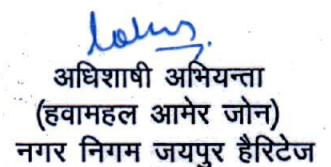 अधिशाषी अभियन्ता
(हवामहल आमेर जोन)
नगर निगम जयपुर हैरिटेज